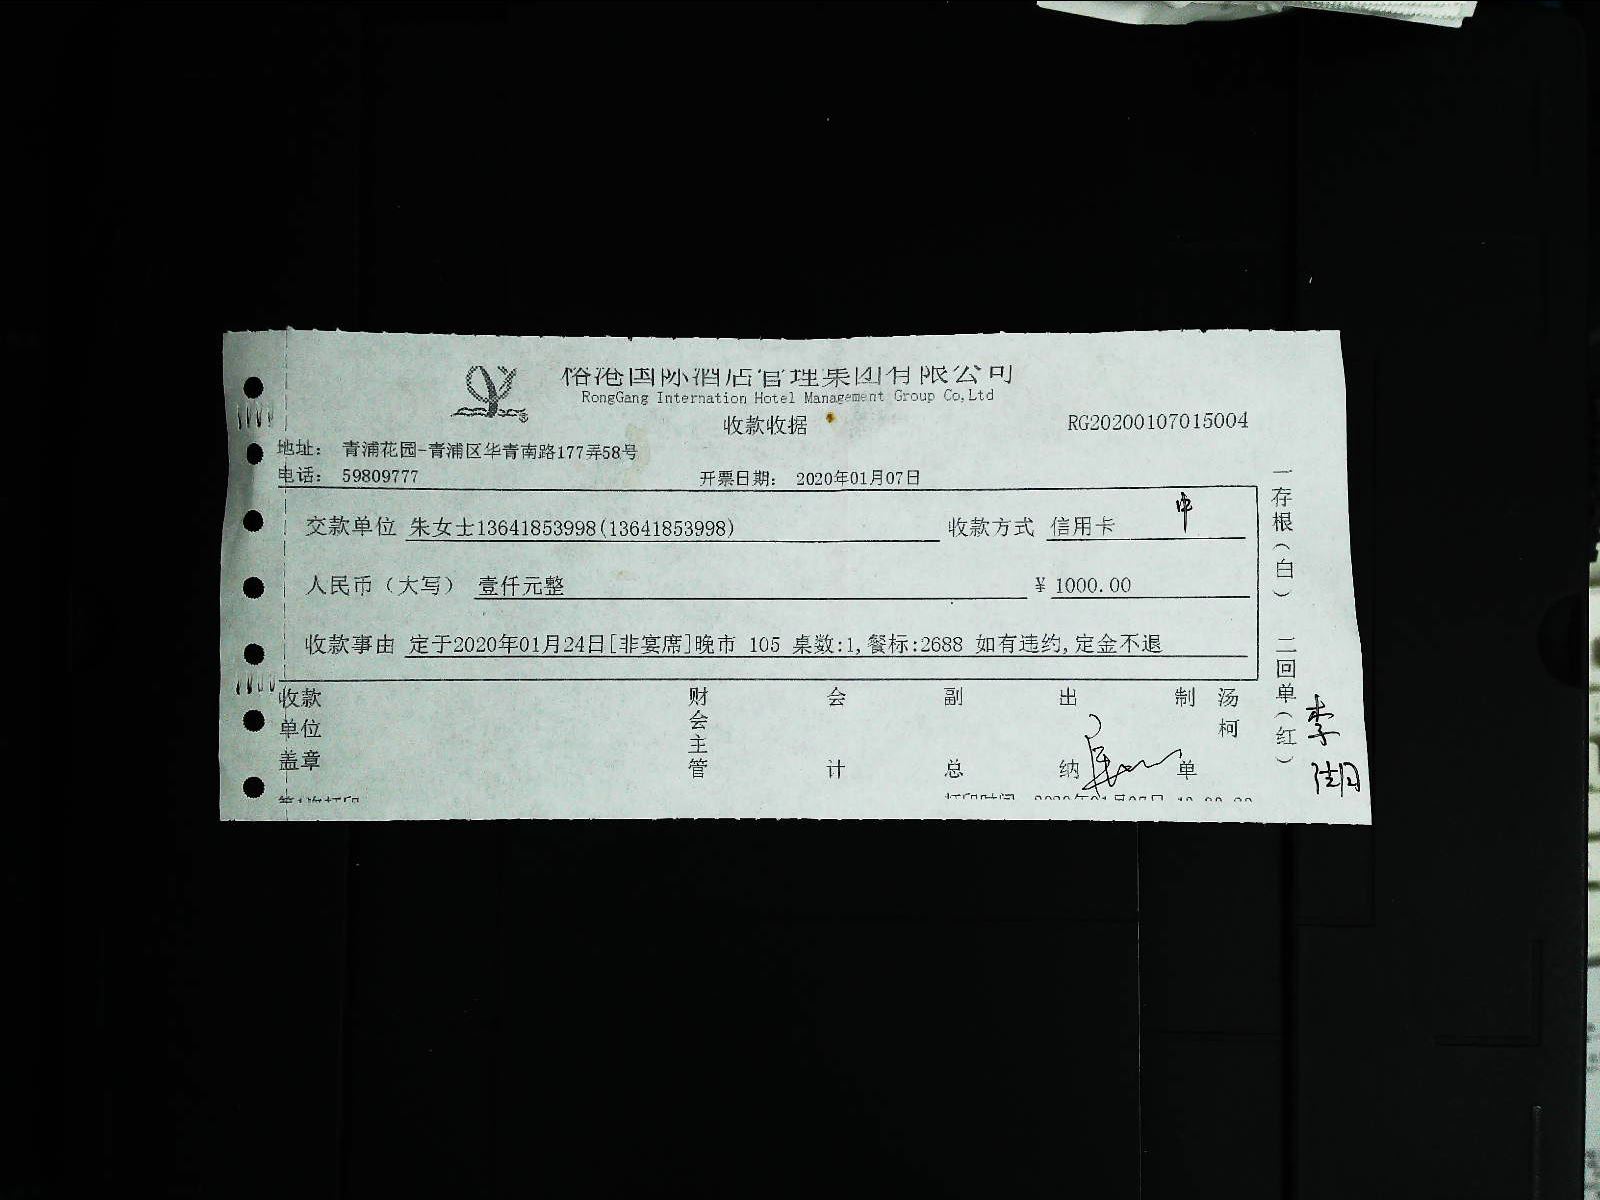 国际酒店管理集团有限公司
RongGang International Hotel Management Group Co,Ltd
收款收据
RG20200107015004
地址： 青浦花园-青浦区华青南路177弄58号
电话： 59809777
开票日期： 2020年01月07日
交款单位 朱女士13641853998(13641853998) 收款方式 信用卡 中
人民币（大写） 壹仟元整 ¥ 1000.00
收款事由 定于2020年01月24日[非宴席]晚市 105 桌数:1,餐标:2688 如有违约,定金不退
收款单位盖章
财会主管
会计
副总
出纳
制单
汤柯
一存根（白） 二回单（红）
李